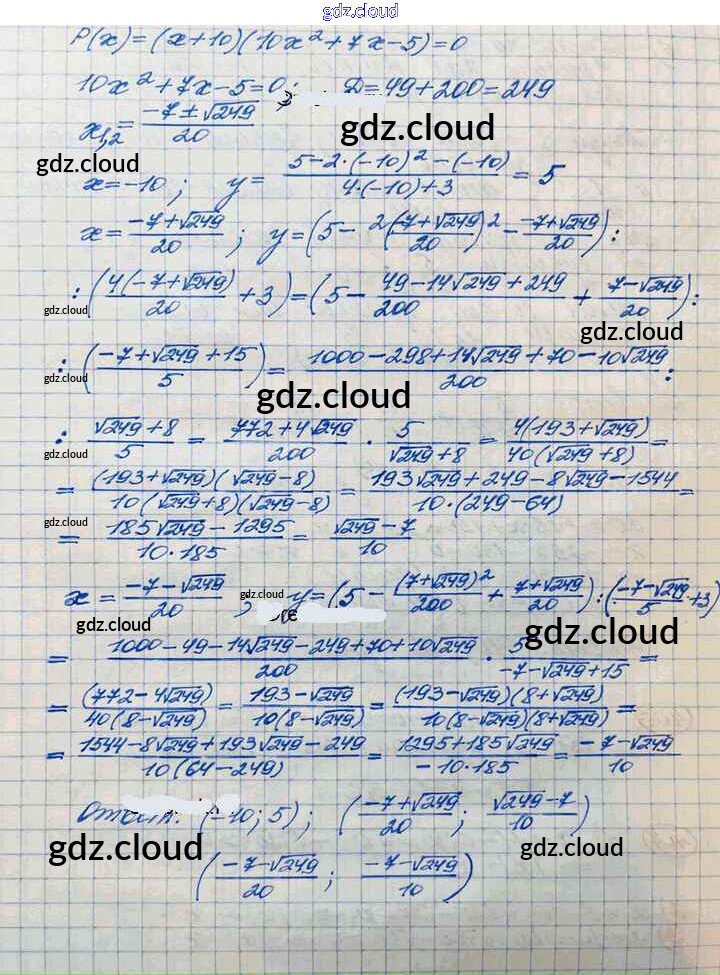 gdz.cloud
P(x)=(x+10)(10x²+7x-5)=0
10x²+7x-5=0; D=49+200=249
x₁,₂ = (-7±√249)/20
gdz.cloud
gdz.cloud
x=-10; y = (5-2·(-10)²-(-10))/(4·(-10)+3) = 5
x = (-7+√249)/20; y=(5 - 2(-7+√249)²/20 - (-7+√249)/20):
:(4(-7+√249)/20 + 3)=(5 - (49-14√249+249)/200 + (7-√249)/20):
gdz.cloud
gdz.cloud
:((-7+√249+15)/5)= (1000-298+14√249+70-10√249)/200 :
gdz.cloud
gdz.cloud
: (√249+8)/5 = (772+4√249)/200 · 5/(√249+8) = 4(193+√249)/(40(√249+8)) =
gdz.cloud
= (193+√249)(√249-8)/(10(√249+8)(√249-8)) = (193√249+249-8√249-1544)/(10·(249-64)) =
gdz.cloud
= (185√249-1295)/(10·185) = (√249-7)/10
x = (-7-√249)/20; y=(5 - (7+√249)²/200 + (7+√249)/20):((-7-√249)/5 +3)
gdz.cloud
gdz.cloud
gdz.cloud
= (1000-49-14√249-249+70+10√249)/200 · 5/(-7-√249+15) =
= (772-4√249)/(40(8-√249)) = (193-√249)/(10(8-√249)) = (193-√249)(8+√249)/(10(8-√249)(8+√249)) =
= (1544-8√249+193√249-249)/(10(64-249)) = (1295+185√249)/(-10·185) = (-7-√249)/10
Ответ: (-10; 5); ((-7+√249)/20; (√249-7)/10)
gdz.cloud
gdz.cloud
((-7-√249)/20; (-7-√249)/10)